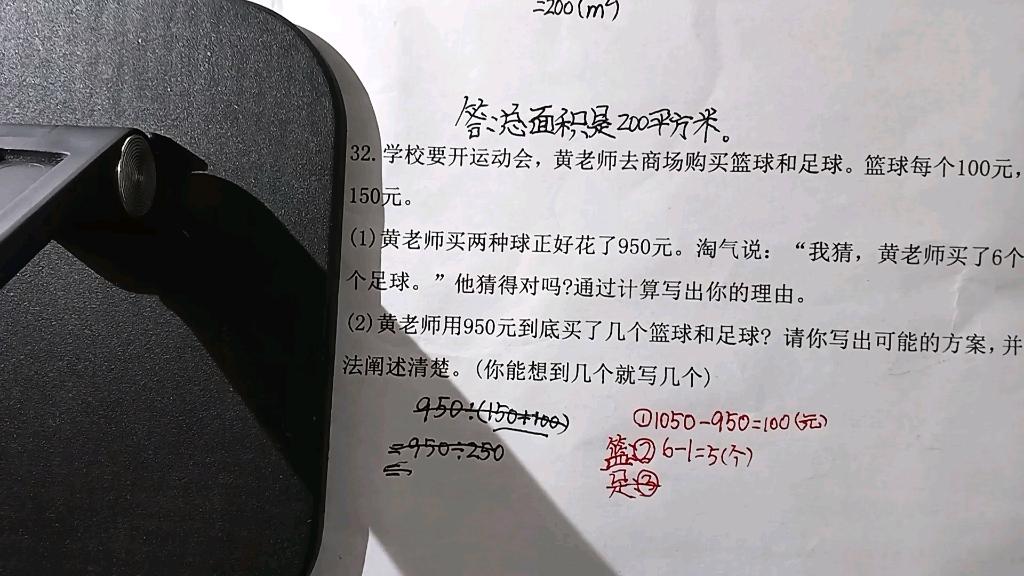 =200(m²)
答:总面积是200平方米。
32.学校要开运动会，黄老师去商场购买篮球和足球。篮球每个100元，
150元。
(1)黄老师买两种球正好花了950元。淘气说：“我猜，黄老师买了6个
个足球。”他猜得对吗?通过计算写出你的理由。
(2)黄老师用950元到底买了几个篮球和足球? 请你写出可能的方案，并
法阐述清楚。(你能想到几个就写几个)
950÷(150+100)
=950÷250
=
①1050-950=100(元)
篮:② 6-1=5(个)
足:③